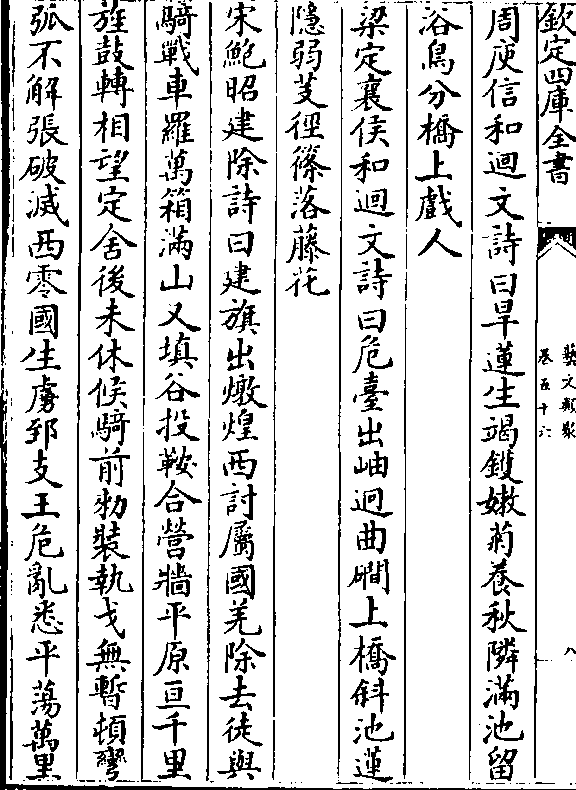 欽定四庫全書
藝文類聚
卷五十六
八
周庾信和迴文詩曰旱蓮生竭鑊嫩菊養秋隣滿池留
浴鳥分橋上戲人
梁定襄侯和迴文詩曰危臺出岫迥曲磵上橋斜池蓮
隱弱芰徑篠落藤花
宋鮑昭建除詩曰建旗出燉煌西討屬國羌除去徒與
騎戰車羅萬箱滿山又填谷投鞍合營牆平原亘千里
旌鼓轉相望定舍後未休候騎前勑裝執戈無暫頓彎
弧不解張破滅西零國生虜郅支王危亂悉平蕩萬里